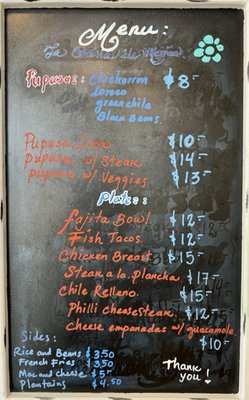 Menu:
La Cocina de Mamá
Pupusas: Chicharron $8-
Loroco
green chile
Black Beans
Pupusa Loca $10-
pupusa w/ Steak $14-
pupusa w/ Veggies $13-
Plates:
Fajita Bowl $12-
Fish Tacos $12-
Chicken Breast $15-
Steak a la Plancha $17-
Chile Relleno $15-
Philli cheesesteak $12-
Cheese empanadas w/ guacamole
$10-
Sides:
Rice and Beans $3.50
French Fries $3.50
Mac and cheese $5-
Plantains $4.50
Thank
you!